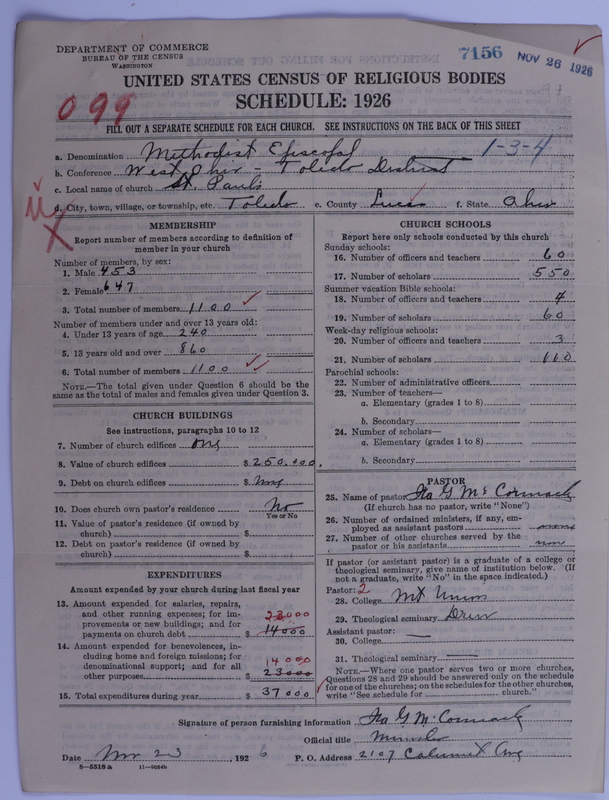 DEPARTMENT OF COMMERCE
BUREAU OF THE CENSUS
WASHINGTON
7156 NOV 26 1926
UNITED STATES CENSUS OF RELIGIOUS BODIES
SCHEDULE: 1926
099
FILL OUT A SEPARATE SCHEDULE FOR EACH CHURCH. SEE INSTRUCTIONS ON THE BACK OF THIS SHEET
a. Denomination Methodist Episcopal 1-3-4
b. Conference West Ohio - Toledo District
c. Local name of church St. Pauls
d. City, town, village, or township, etc. Toledo e. County Lucas f. State Ohio
MEMBERSHIP
Report number of members according to definition of
member in your church
Number of members, by sex:
1. Male 453
2. Female 647
3. Total number of members 1100
Number of members under and over 13 years old:
4. Under 13 years of age 240
5. 13 years old and over 860
6. Total number of members 1100
NOTE.—The total given under Question 6 should be
same as the total of males and females given under Question 3.
CHURCH BUILDINGS
See instructions, paragraphs 10 to 12
7. Number of church edifices one
8. Value of church edifices $250,000.
9. Debt on church edifices $
10. Does church own pastor's residence No
Yes or No
11. Value of pastor's residence (if owned by
church) $
12. Debt on pastor's residence (if owned by
church) $
EXPENDITURES
Amount expended by your church during last fiscal year
13. Amount expended for salaries, repairs,
and other running expenses; for im-
provements or new buildings; and for
payments on church debt $ 23000 14000
14. Amount expended for benevolences, in-
cluding home and foreign missions; for
denominational support; and for all
other purposes $ 14000 23000
15. Total expenditures during year $ 37000
CHURCH SCHOOLS
Report here only schools conducted by this church
Sunday schools:
16. Number of officers and teachers 60
17. Number of scholars 550
Summer vacation Bible schools:
18. Number of officers and teachers 4
19. Number of scholars 60
Week-day religious schools:
20. Number of officers and teachers 3
21. Number of scholars 110
Parochial schools:
22. Number of administrative officers
23. Number of teachers—
a. Elementary (grades 1 to 8)
b. Secondary
24. Number of scholars—
a. Elementary (grades 1 to 8)
b. Secondary
PASTOR
25. Name of pastor Ira G McCormack
(If church has no pastor, write "None")
26. Number of ordained ministers, if any, em-
ployed as assistant pastors none
27. Number of other churches served by the
pastor or his assistants none
If pastor (or assistant pastor) is a graduate of a college or
theological seminary, give name of institution below. (If
not a graduate, write "No" in the space indicated.)
Pastor: 2
28. College Mt Union
29. Theological seminary Drew
Assistant pastor:
30. College
31. Theological seminary
NOTE.—Where one pastor serves two or more churches,
Questions 28 and 29 should be answered only on the schedule
for one of the churches; on the schedules for the other churches,
write "See schedule for church."
Signature of person furnishing information Ira G McCormack
Official title Minister
Date Nov 23, 1926 P. O. Address 2107 Calumet Ave
8—5518a 11—9054b